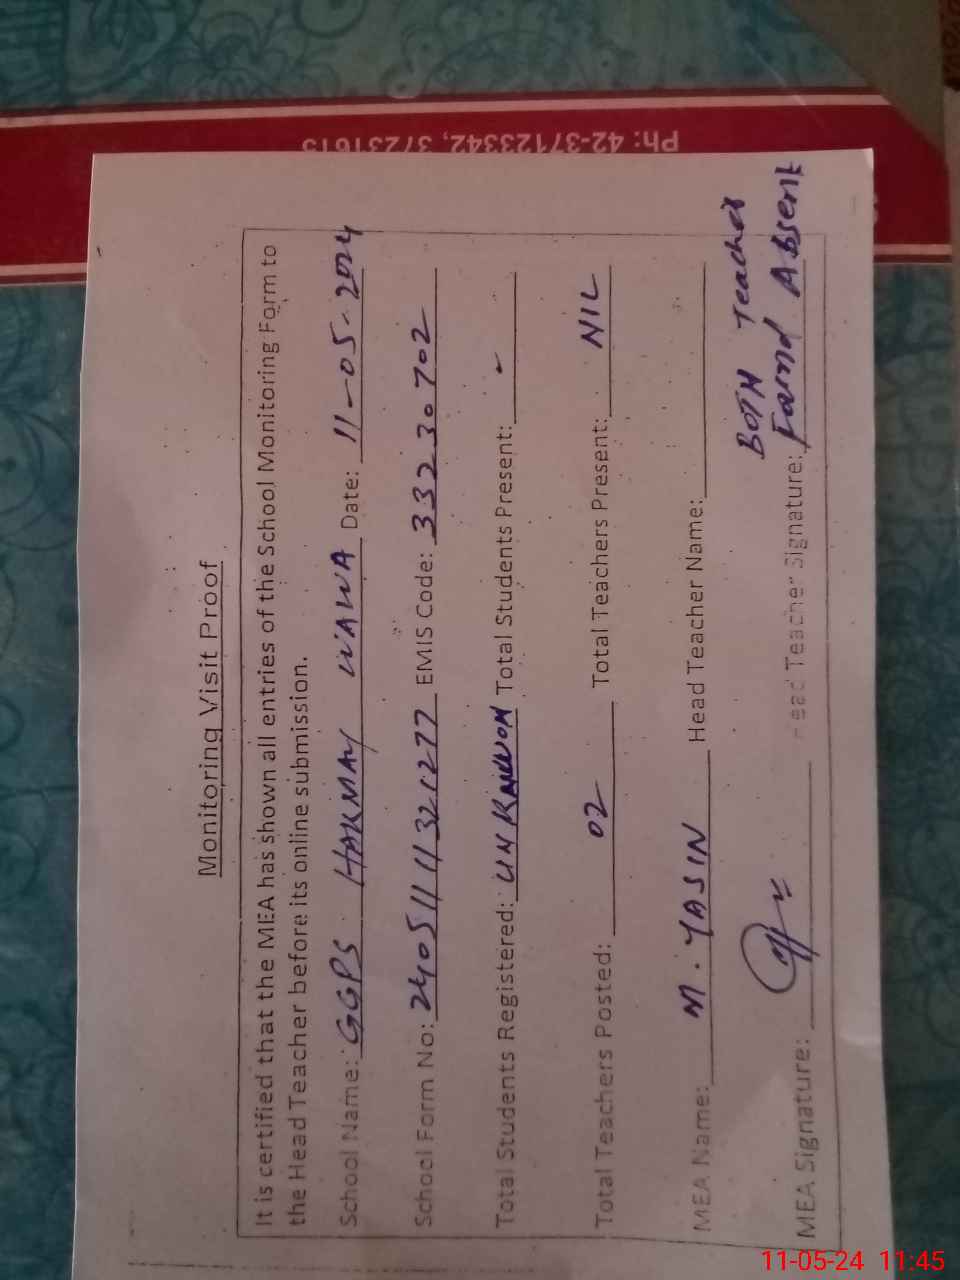 Ph: 42-37123342, 37231615
Monitoring Visit Proof
It is certified that the MEA has shown all entries of the School Monitoring Form to
the Head Teacher before its online submission.
School Name: GGPS HARMAY WAWA Date: 11-05-2024
School Form No: 24051113321277 EMIS Code: 33230702
Total Students Registered: UNKNWON Total Students Present: -
Total Teachers Posted: 02 Total Teachers Present: NIL
MEA Name: M. YASIN Head Teacher Name:
BOTH Teacher
MEA Signature: Head Teacher Signature: Found Absent
11-05-24 11:45